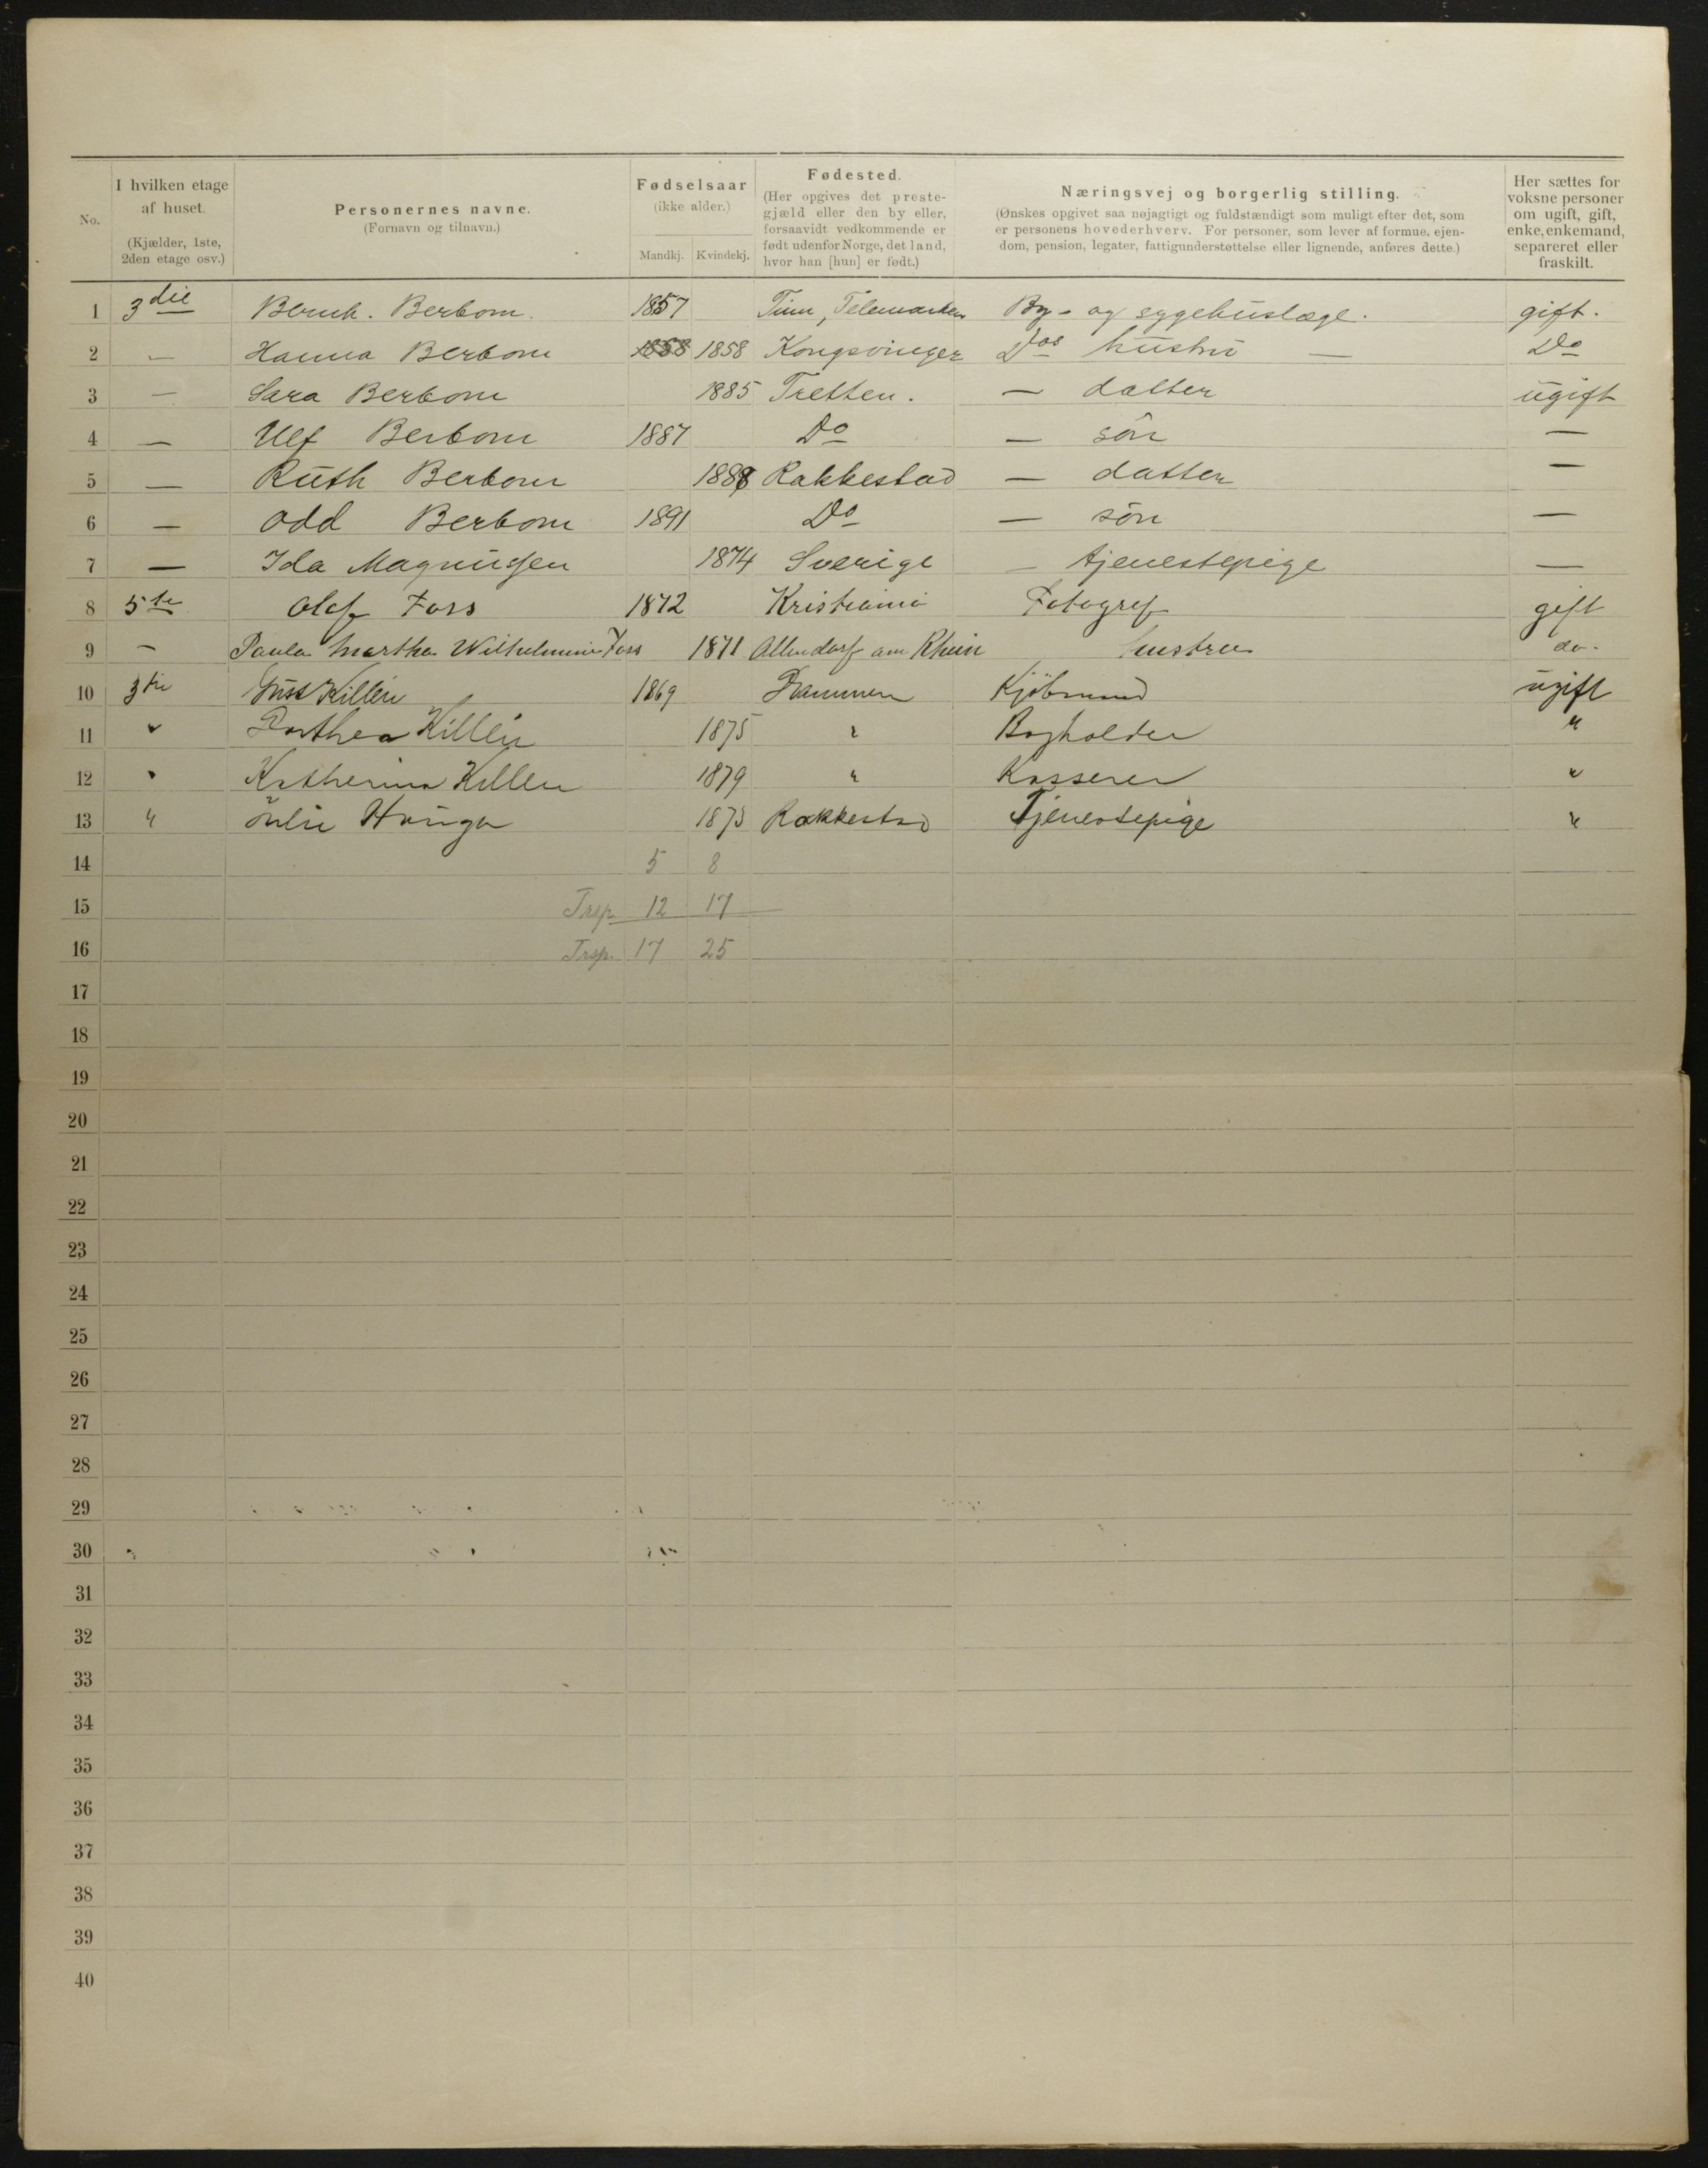 No.
I hvilken etage af huset. (Kjælder, 1ste, 2den etage osv.)
Personernes navne. (Fornavn og tilnavn.)
Fødselsaar (ikke alder.)
Mandkj. Kvindekj.
Fødested. (Her opgives det prestegjæld eller den by eller, forsaavidt vedkommende er født udenfor Norge, det land, hvor han [hun] er født.)
Næringsvej og borgerlig stilling. (Ønskes opgivet saa nøjagtigt og fuldstændigt som muligt efter det, som er personens hovederhverv. For personer, som lever af formue, ejendom, pension, legater, fattigunderstøttelse eller lignende, anføres dette.)
Her sættes for voksne personer om ugift, gift, enke, enkemand, separeret eller fraskilt.
1 3die Bernh. Berbom. 1857 Tinn, Telemarken By- og sygehuslæge. gift.
2 — Hanna Berbom 1858 1858 Kongsvinger Dos hustru — Do
3 — Sara Berbom 1885 Tretten. — datter ugift
4 — Ulf Berbom 1887 Do — sön —
5 — Ruth Berbom 1888 Rakkestad — datter —
6 — Odd Berbom 1891 Do — sön —
7 — Ida Magnussen 1874 Sverige — tjenestepige —
8 5te Olaf Foss 1872 Kristiania Fotograf gift
9 — Paula Martha Wilhelmine Foss 1871 am Rhein hustru do.
10 3die Gust Killén 1869 Drammen Kjöbmand ugift
11 " Dorthea Killén 1875 " Bogholder "
12 " Katherina Killen 1879 " Kasserer "
13 " Julie 1873 Rakkestad Tjenestepige "
14 5 8
15 Trsp. 12 17
16 Trsp. 17 25
17
18
19
20
21
22
23
24
25
26
27
28
29
30
31
32
33
34
35
36
37
38
39
40